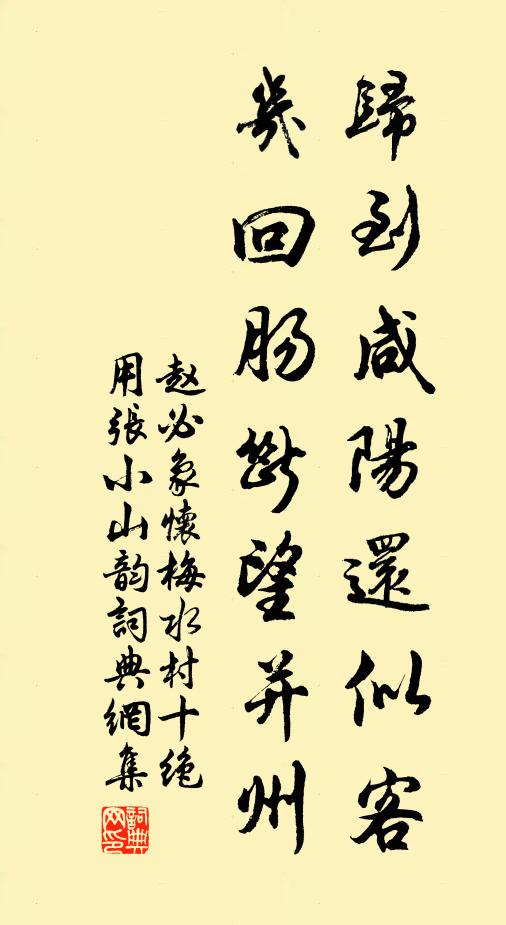 歸到咸陽還似客
幾回腸斷望并州
赵必象懷梅水村十绝
用張小山韵詞典網集
詞典
网印